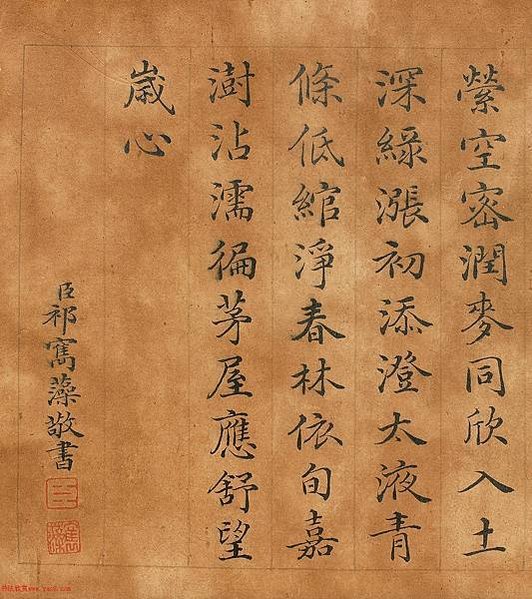 縈空密潤麥同欣入土
深緑漲初添澄太液青
條低綰淨春林依旬嘉
澍沾濡徧茅屋應舒望
歲心
臣祁寯藻敬書